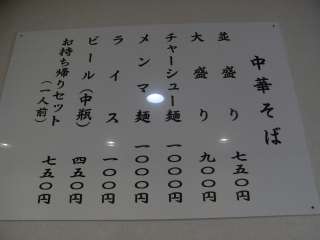 中華そば
並盛り 七五〇円
大盛り 九〇〇円
チャーシュー麺 一〇〇〇円
メンマ麺 一〇〇〇円
ライス 一〇〇円
ビール(中瓶) 四五〇円
お持ち帰りセット(一人前) 七五〇円